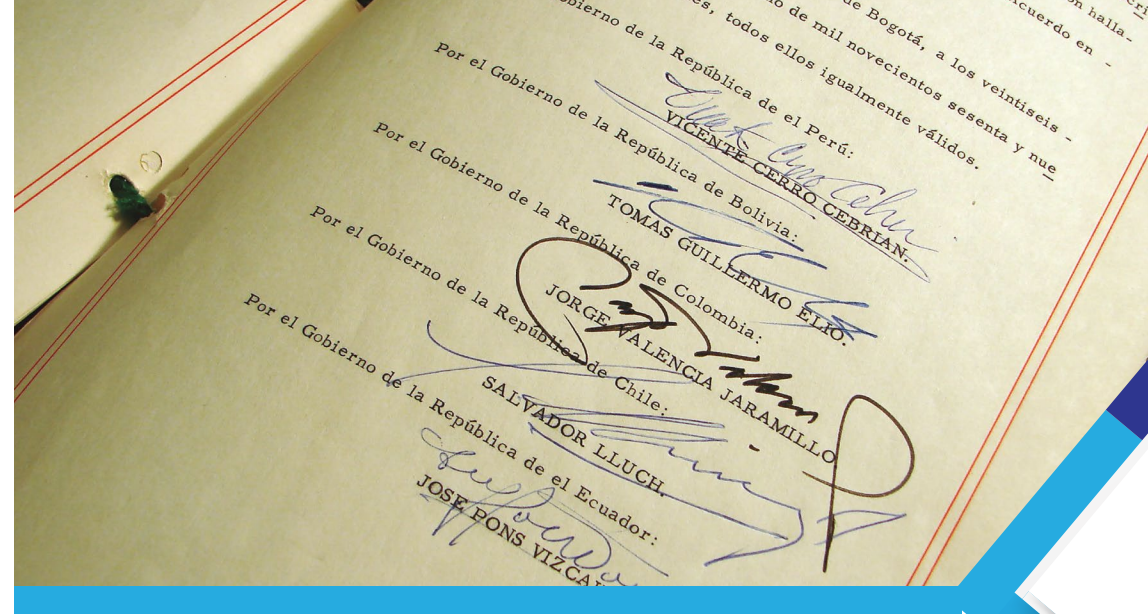 halla-
cuerdo en -
de Bogotá, a los veintiseis -
de mil novecientos sesenta y nue
es, todos ellos igualmente válidos.
bierno de la República de el Perú:
VICENTE CERRO CEBRIAN.
Por el Gobierno de la República de Bolivia:
TOMAS GUILLERMO ELIO.
Por el Gobierno de la República de Colombia:
JORGE VALENCIA JARAMILLO
Por el Gobierno de la República de Chile:
SALVADOR LLUCH.
Por el Gobierno de la República de el Ecuador:
JOSE PONS VIZCA